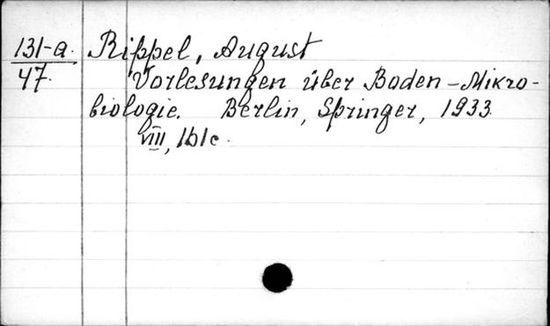 131-a. Rippel, August
47. Vorlesungen über Boden-Mikro-
biologie. Berlin, Springer, 1933.
VIII, 161c.